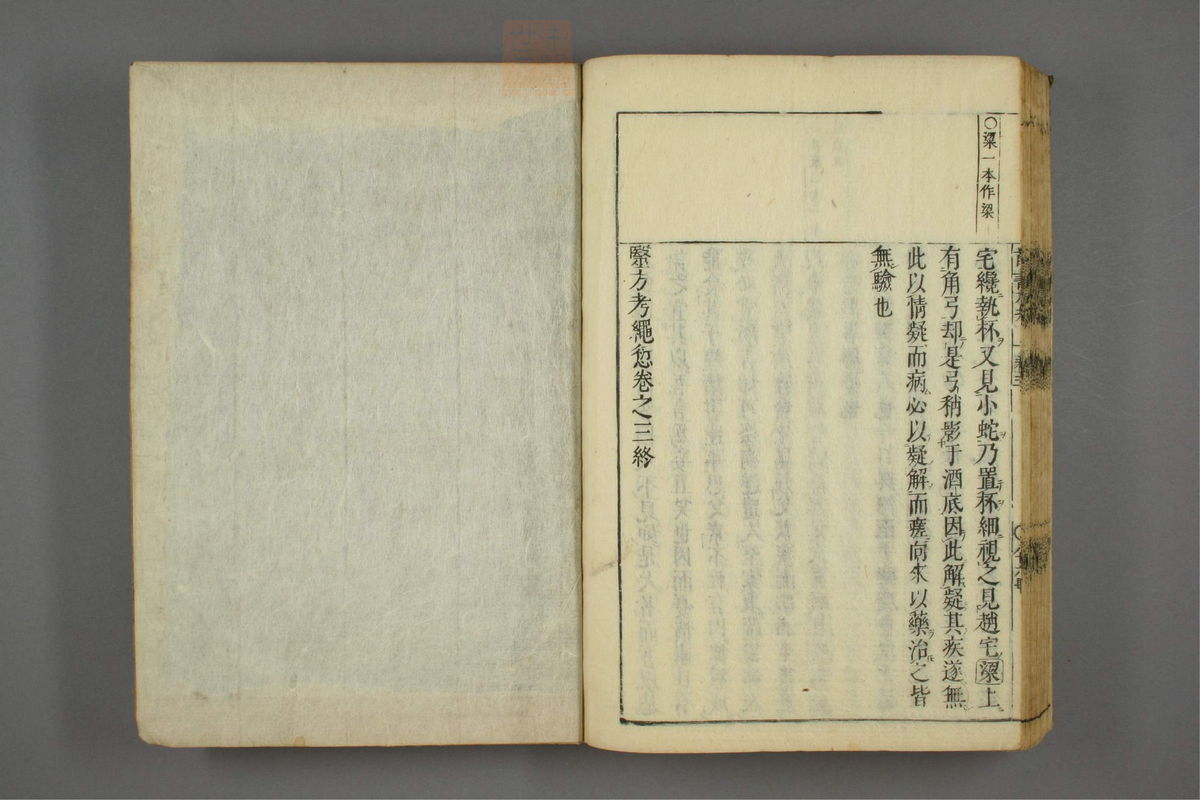 ○梁一本作梁
宅纔執杯又見小蛇乃置杯細視之見趙宅梁上
有角弓却是弓稍影于酒底因此解疑其疾遂無
此以情疑而病必以疑解而瘥向來以藥治之皆
無驗也
醫方考繩愆卷之三終